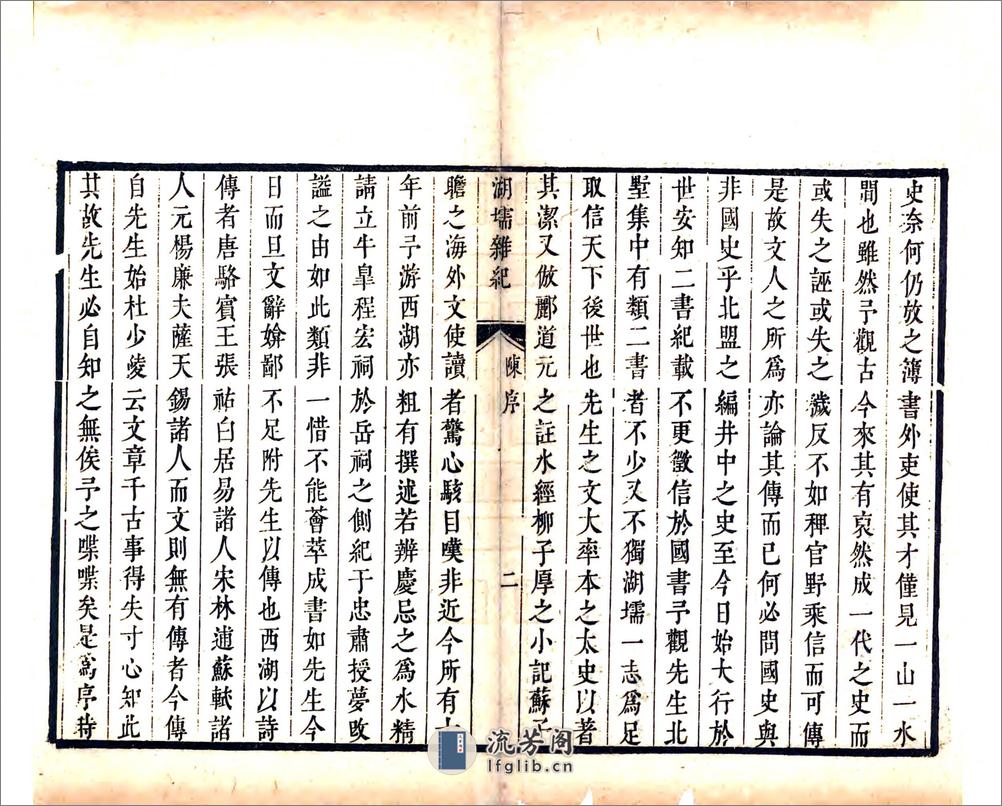 史奈何仍放之簿書外吏使其才僅見一山一水
間也雖然予觀古今來其有裒然成一代之史而
或失之誣或失之穢反不如稗官野乘信而可傳
是故文人之所爲亦論其傳而已何必問國史與
非國史乎北盟之編井中之史至今日始大行於
世安知二書紀載不更徵信於國書予觀先生北
墅集中有類二書者不少又不獨湖壖一志爲足
取信天下後世也先生之文大率本之太史以著
其潔又倣酈道元之註水經柳子厚之小記蘇子
湖壖雜紀
陳序
二
瞻之海外文使讀者驚心駭目嘆非近今所有十
年前予游西湖亦粗有撰述若辨慶忌之爲水精
請立牛臯程宏祠於岳祠之側紀于忠肅授夢改
謚之由如此類非一惜不能薈萃成書如先生今
日而且文辭媕鄙不足附先生以傳也西湖以詩
傳者唐駱賓王張祐白居易諸人宋林逋蘇軾諸
人元楊廉夫薩天錫諸人而文則無有傳者今傳
自先生始杜少陵云文章千古事得失寸心知此
其故先生必自知之無俟予之喋喋矣是爲序時
流芳阁
lfglib.cn